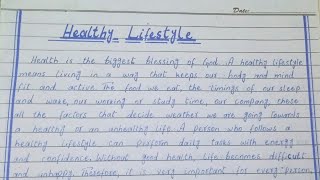 Date:
Healthy Lifestyle
Health is the biggest blessing of God. A healthy lifestyle
means living in a way that keeps our body and mind
fit and active. The food we eat, the timings of our sleep
and wake, our working or study time, our company, these
all the factors that decide weather we are going towards
a healthy or an unhealthy life. A person who follows a
healthy lifestyle can perform daily tasks with energy
and confidence. Without good health, life becomes difficult
and unhappy. Therefore, it is very important for every person